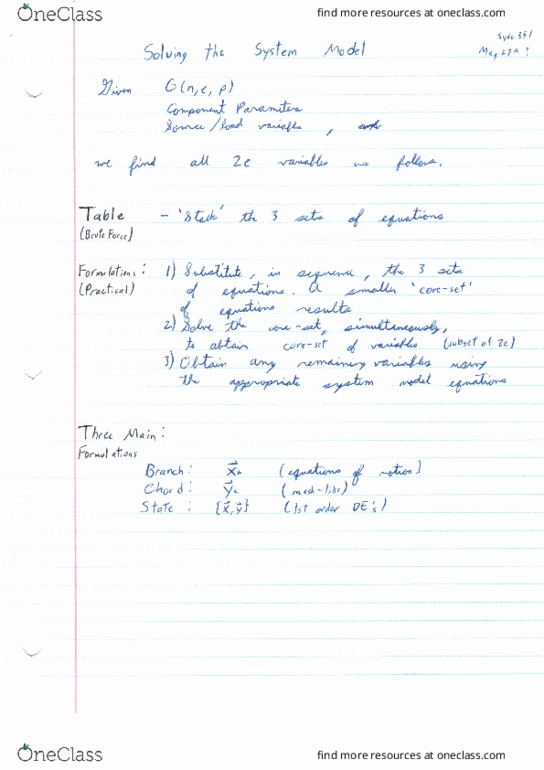 OneClass
find more resources at oneclass.com
Syde 351
Solving the System Model
May 27th
Given G(n,e,p)
Component Parameters
Source/load variables, and
we find all 2e variables as follows.
Table - 'Stack' the 3 sets of equations
(Brute Force)
Formulations: 1) Substitute, in sequence, the 3 sets
(Practical) of equations. A smaller 'core-set'
of equations results
2) Solve the core-set, simultaneously,
to obtain core-set of variables (subset of 2e)
3) Obtain any remaining variables using
the appropriate system model equations
Three Main:
Formulations
Branch: x⃗b (equations of motion)
Chord: y⃗c (mesh-like)
State: {x⃗,y⃗} (1st order DE's)
OneClass
find more resources at oneclass.com